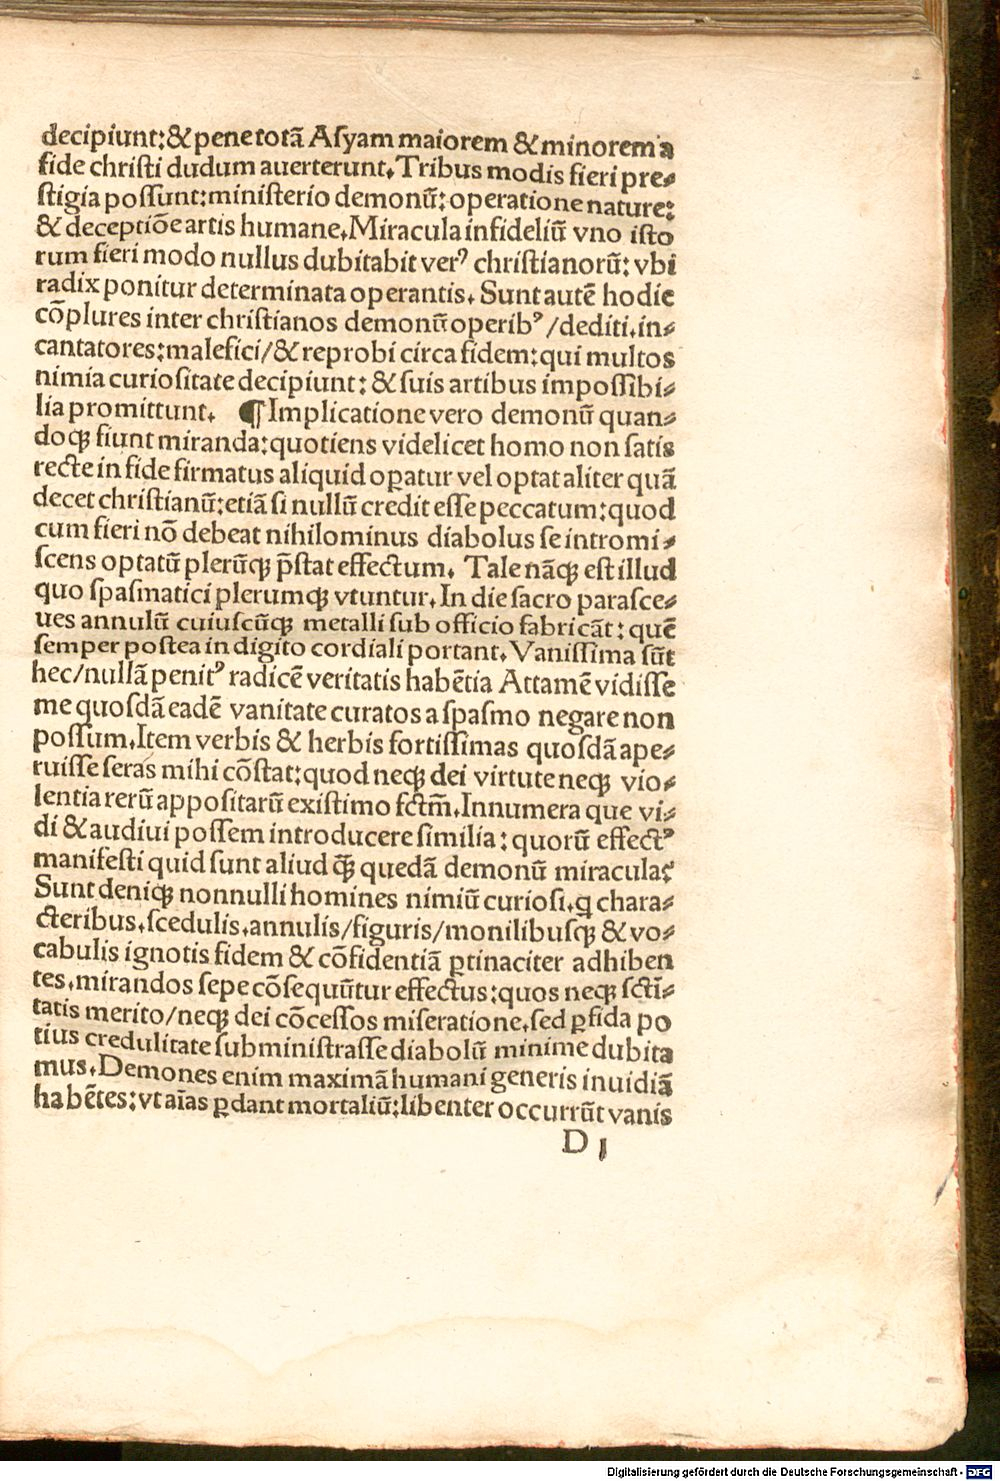 decipiunt:&penetotā Aſyam maiorem & minorem a
fide chriſti dudum auerterunt. Tribus modis fieri pre⸗
ſtigia poſſunt:miniſterio demonū:operatione nature:
& deceptiōe artis humane.Miracula infideliū vno iſto
rum fieri modo nullus dubitabit verꝰ chriſtianorū: vbi
radix ponitur determinata operantis. Sunt autē hodie
cōplures inter chriſtianos demonū operibꝰ/dediti.in⸗
cantatores:malefici/& reprobi circa fidem:qui multos
nimia curioſitate decipiunt: & ſuis artibus impoſſibi⸗
lia promittunt. ¶ Implicatione vero demonū quan⸗
doqꝫ fiunt miranda:quotiens videlicet homo non ſatis
recte in fide firmatus aliquid oꝑatur vel optat aliter quā
decet chriſtianū:etiā ſi nullū credit eſſe peccatum:quod
cum fieri nō debeat nihilominus diabolus ſe intromi⸗
ſcens optatū plerūqꝫ p̄ſtat effectum. Tale nāqꝫ eſt illud
quo ſpaſmatici plerumqꝫ vtuntur.In die ſacro paraſce⸗
ues annulū cuiuſcūqꝫ metalli ſub officio fabricāt: quē
ſemper poſtea in digito cordiali portant. Vaniſſima ſūt
hec/nullā penitꝰ radicē veritatis habētia Attamē vidiſſe
me quoſdā eadē vanitate curatos a ſpaſmo negare non
poſſum.Item verbis & herbis fortiſſimas quoſdā ape⸗
ruiſſe ſeras mihi cōſtat:quod neqꝫ dei virtute neqꝫ vio⸗
lentia rerū appoſitarū exiſtimo fctm̄.Innumera que vi⸗
di & audiui poſſem introducere ſimilia: quorū effectꝰ
manifeſti quid ſunt aliud q̄ꝫ quedā demonū miracula?
Sunt deniqꝫ nonnulli homines nimiū curioſi.q chara⸗
cteribus.ſcedulis.annulis/figuris/monilibuſqꝫ & vo⸗
cabulis ignotis fidem & cōfidentiā ꝑtinaciter adhiben
tes.mirandos ſepe cōſequūtur effectus:quos neqꝫ ſcti⸗̄
tatis merito/neqꝫ dei cōceſſos miſeratione.ſed ꝑfida po
tius credulitate ſubminiſtraſſe diabolū minime dubita
mus.Demones enim maximā humani generis inuidiā
habētes:vt aīas ꝑdant mortaliū:libenter occurrūt vanis
D 1
Digitalisierung gefördert durch die Deutsche Forschungsgemeinschaft - DFG